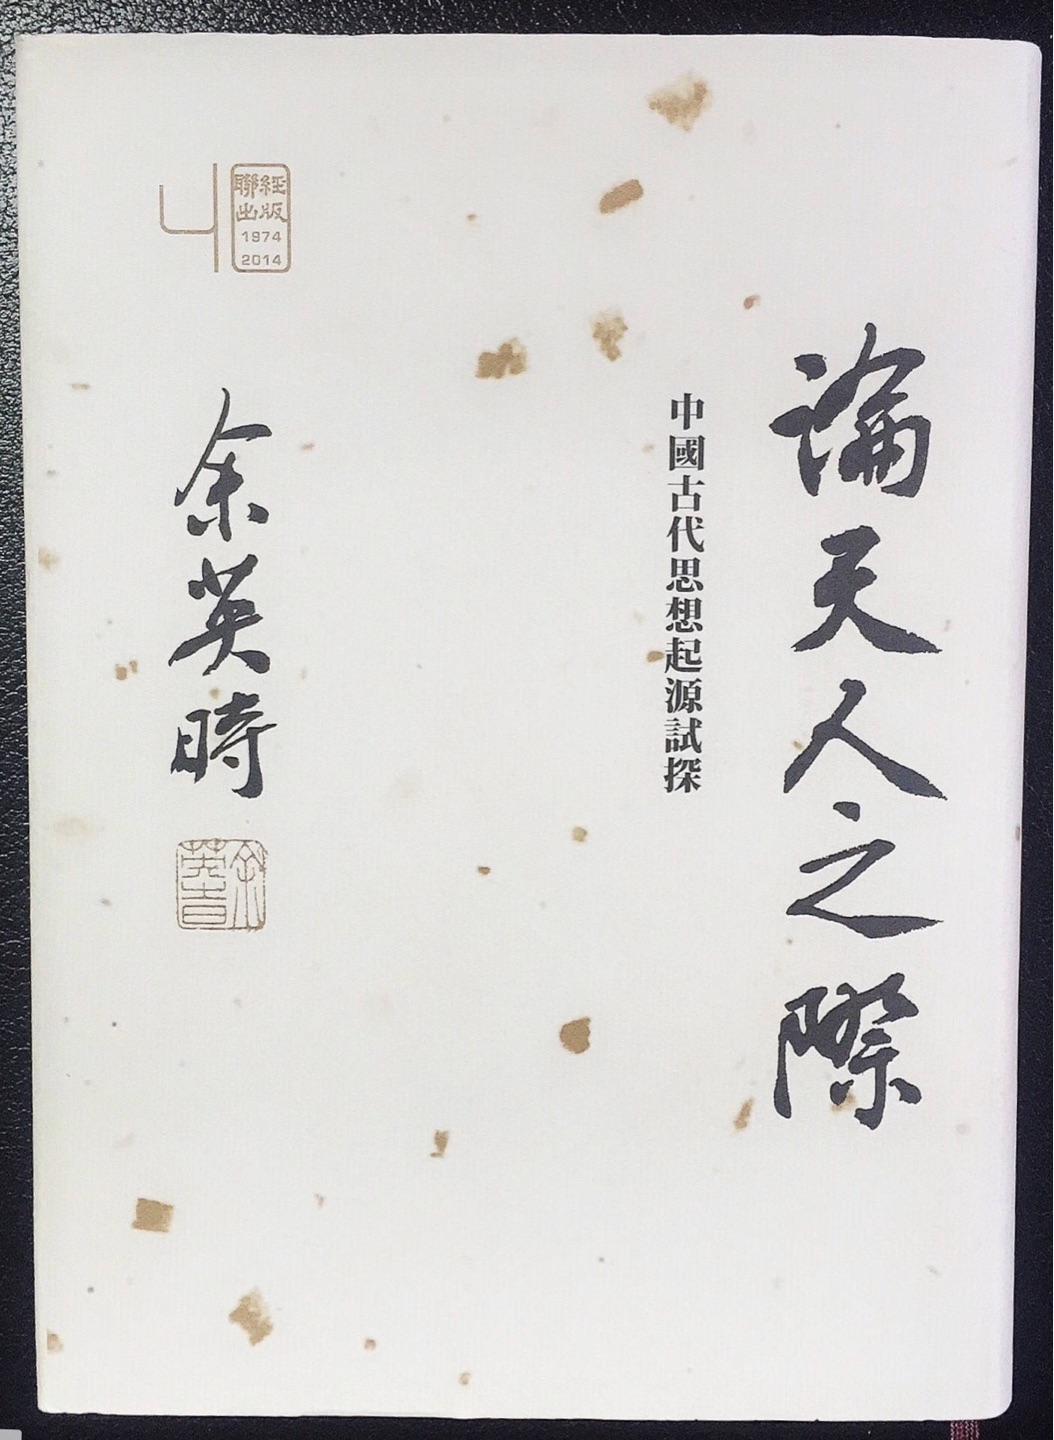 論天人之際
中國古代思想起源試探
聯經
出版
1974
2014
余英時